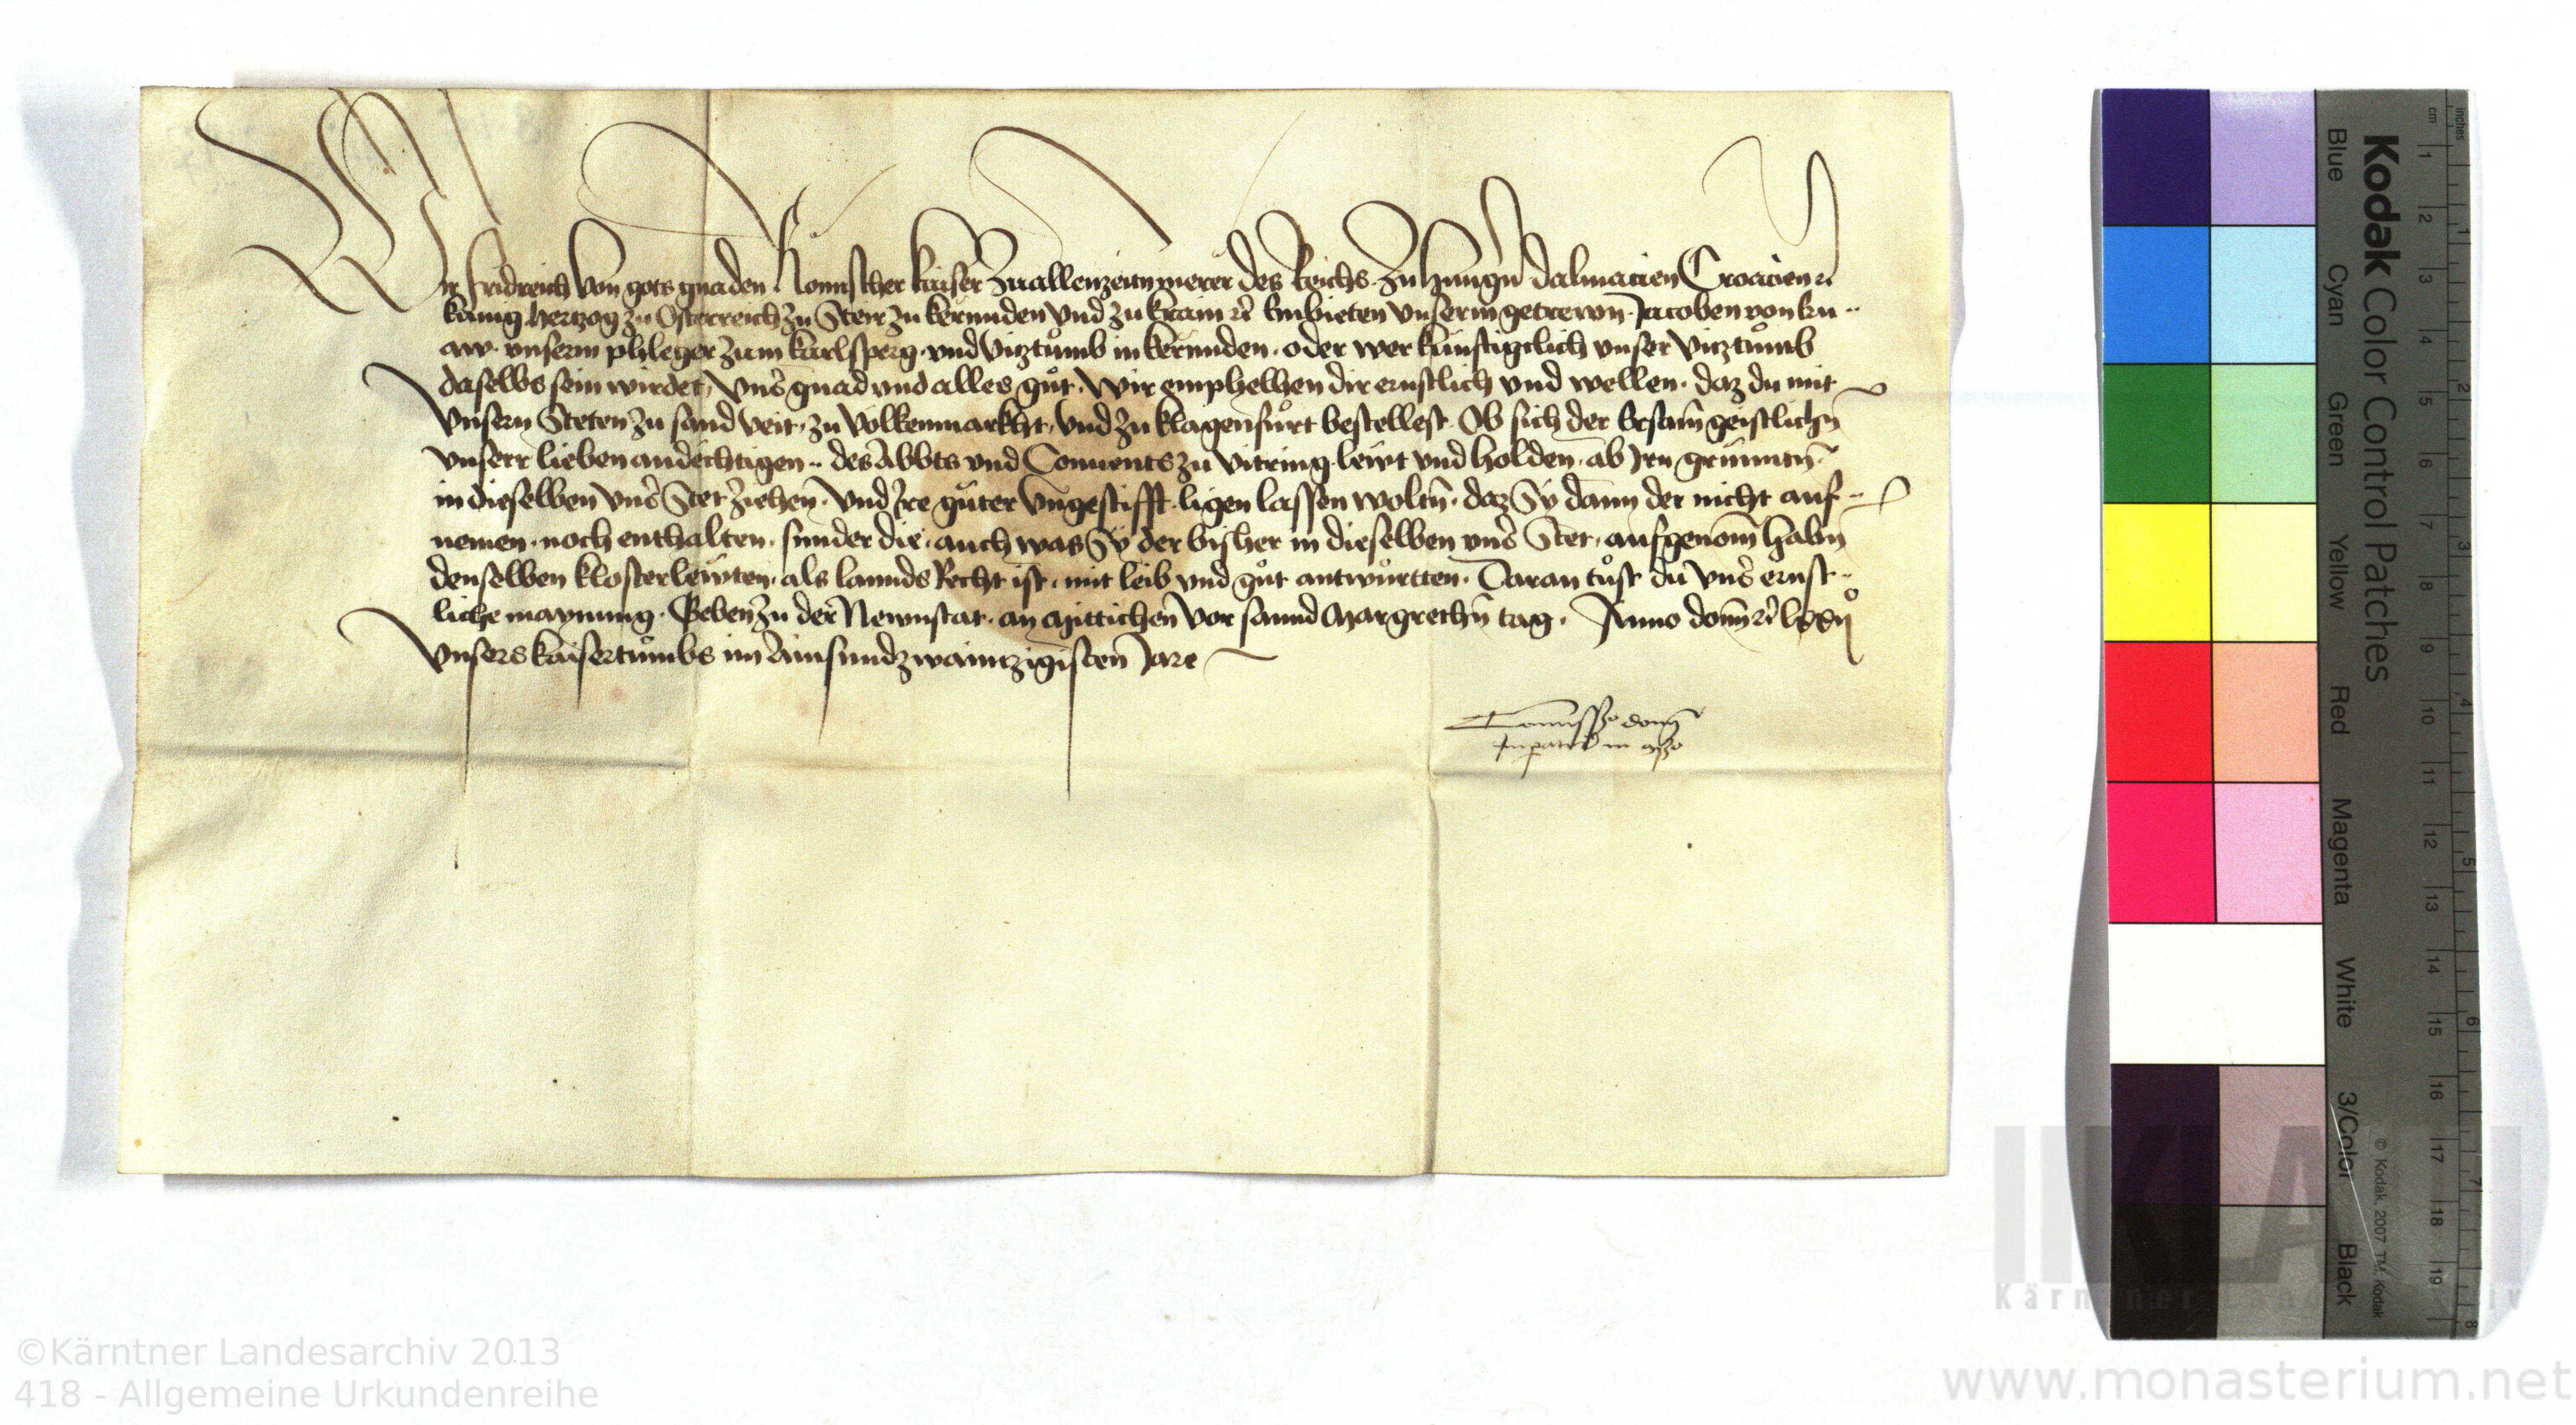 Wir Fridreich von gots gnaden Romischer kaiser zuallenzeitn merer des Reichs zu Hungern Dalmacien Croacien ꝛc
kunig hertzog zu Osterreich zu Steir zu kernnden vnd zu krain ꝛc Embieten vnserm getrewn Jacoben von Ern
aw vnserm phleger zum karlsperg vnd viztumb in kernnden oder wer kunftigclich vnser viztumb
daselbs sein wirdet, vnsͤ gnad vnd alles gůt. Wir emphelhen dir ernstlich vnd wellen. daz du mit
vnsern Steten zu sand veit, zu volkenmarkht, vnd zu klagenfurt bestellest. Ob sich der Ersam̄ geistlichn̄
vnserr lieben andechtigen .. des Abbts vnd Conuents zu vitring lewt vnd holden. ab Jrn grunntn̄
in dieselben vnsͤ Stet ziehen. vnd Jre gůter vngestifft ligen lassen woltn̄. daz Sy dann der nicht auf
nemen. noch enthalten. sunder die. auch was Sy der bisher in dieselben vnsͤ Stet. aufgenom̄ habn̄
denselben klosterlewten. als lannds Recht ist. mit leib vnd gůt antwůrtten. Daran tůst du vnsͤ ernst
liche maynung. Geben zu der Newnstat. an Mittichen vor sannd Margrethn̄ tag. Anno domī ꝛc lxxijº
vnsers kaisertumbs im Ainsundzwaintzigisten Jare
Com̄issio domī
Inpatoris in 9º
©Kärntner Landesarchiv 2013
418 - Allgemeine Urkundenreihe
Kodak Color Control Patches
Blue Cyan Green Yellow Red Magenta White 3/Color Black
© Kodak, 2007 TM: Kodak
cm 1 2 3 4 5 6 7 8 9 10 11 12 13 14 15 16 17 18 19
inches 1 2 3 4 5 6 7 8
www.monasterium.net